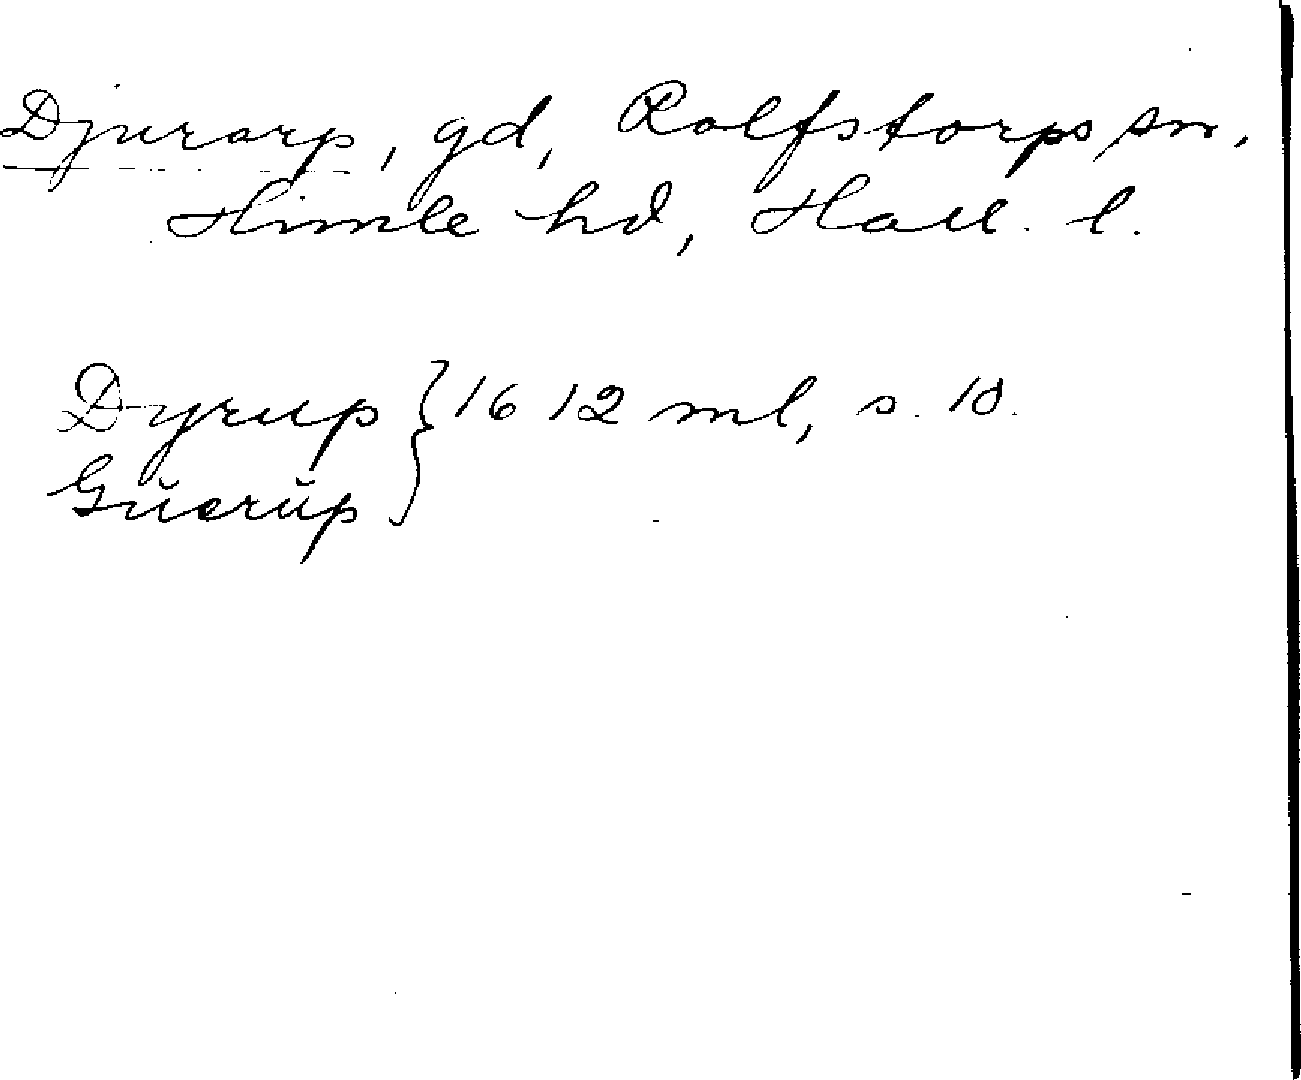 Djurarp, gd, Rolfstorps sn,
Himle hd, Hall. l.
Dyrup } 1612 ml, s. 10.
Gŭerŭp